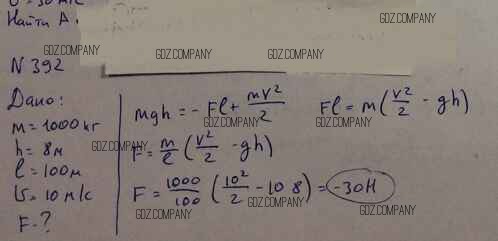 Найти А.
GDZ.COMPANY
GDZ.COMPANY GDZ.COMPANY
GDZ.COMPANY
N 392
Дано:
m = 1000 кг
h = 8 м
l = 100 м
v = 10 м/с
F - ?
mgh = - Fl + mv²/2 Fl = m(v²/2 - gh)
GDZ.COMPANY GDZ.COMPANY
F = m/l (v²/2 - gh)
GDZ.COMPANY GDZ.COMPANY
F = 1000/100 (10²/2 - 10 8) = -30 Н
GDZ.COMPANY GDZ.COMPANY
GDZ.COMPANY